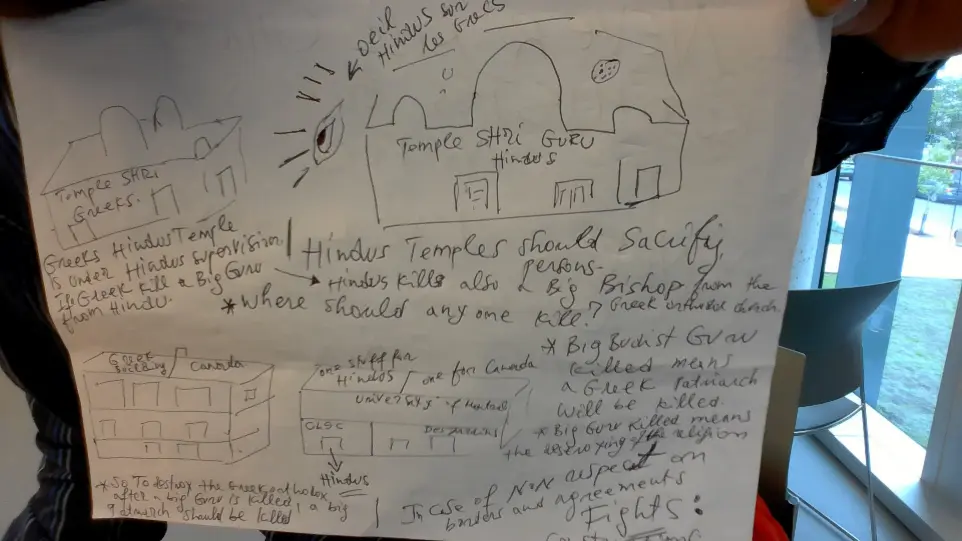 oeil
Hindus sur
les Grecs
Temple SHRI GURU
Hindus
Temple SHRI
Greeks.
Greeks Hindus Temple
is under Hindus supervision
if Greek kill a Big Guru
from Hindu.
Hindus Temples should Sacrify
persons.
→ Hindus kills also a Big Bishop from the
Greek church.
* where should any one kill?
* Big Budist Guru
killed means
a Greek Patriarch
will be killed.
* Big Guru killed means
the destroying of the religion
Greek
Building / Canada
one stuff for
Hindus / one for Canada
of
CLSC
Desjardins
Hindus
* So To destroy the Greek
after a big Guru is killed, a big
patriarch should be killed
In case of NON respect on
borders and agreements
Fights: